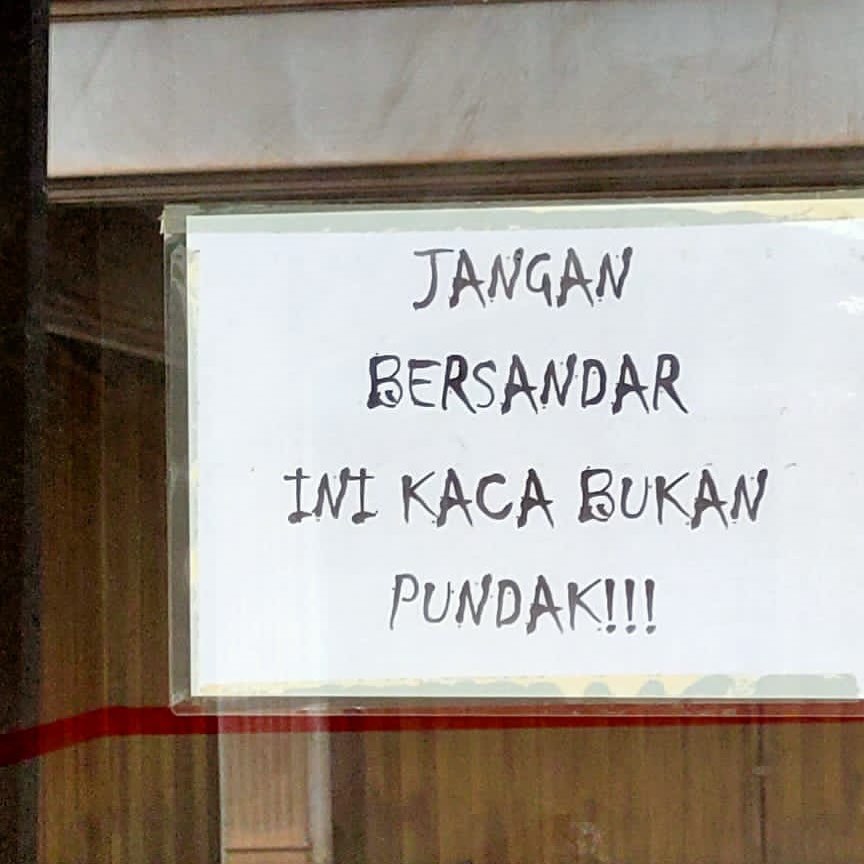 JANGAN
BERSANDAR
INI KACA BUKAN
PUNDAK!!!